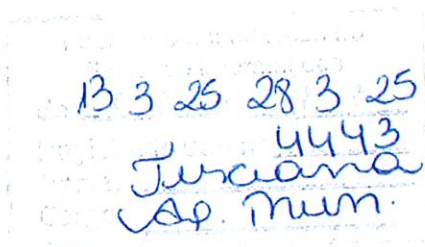 13 3 25 28 3 25
4443
Jusciana
Ap. Mun.